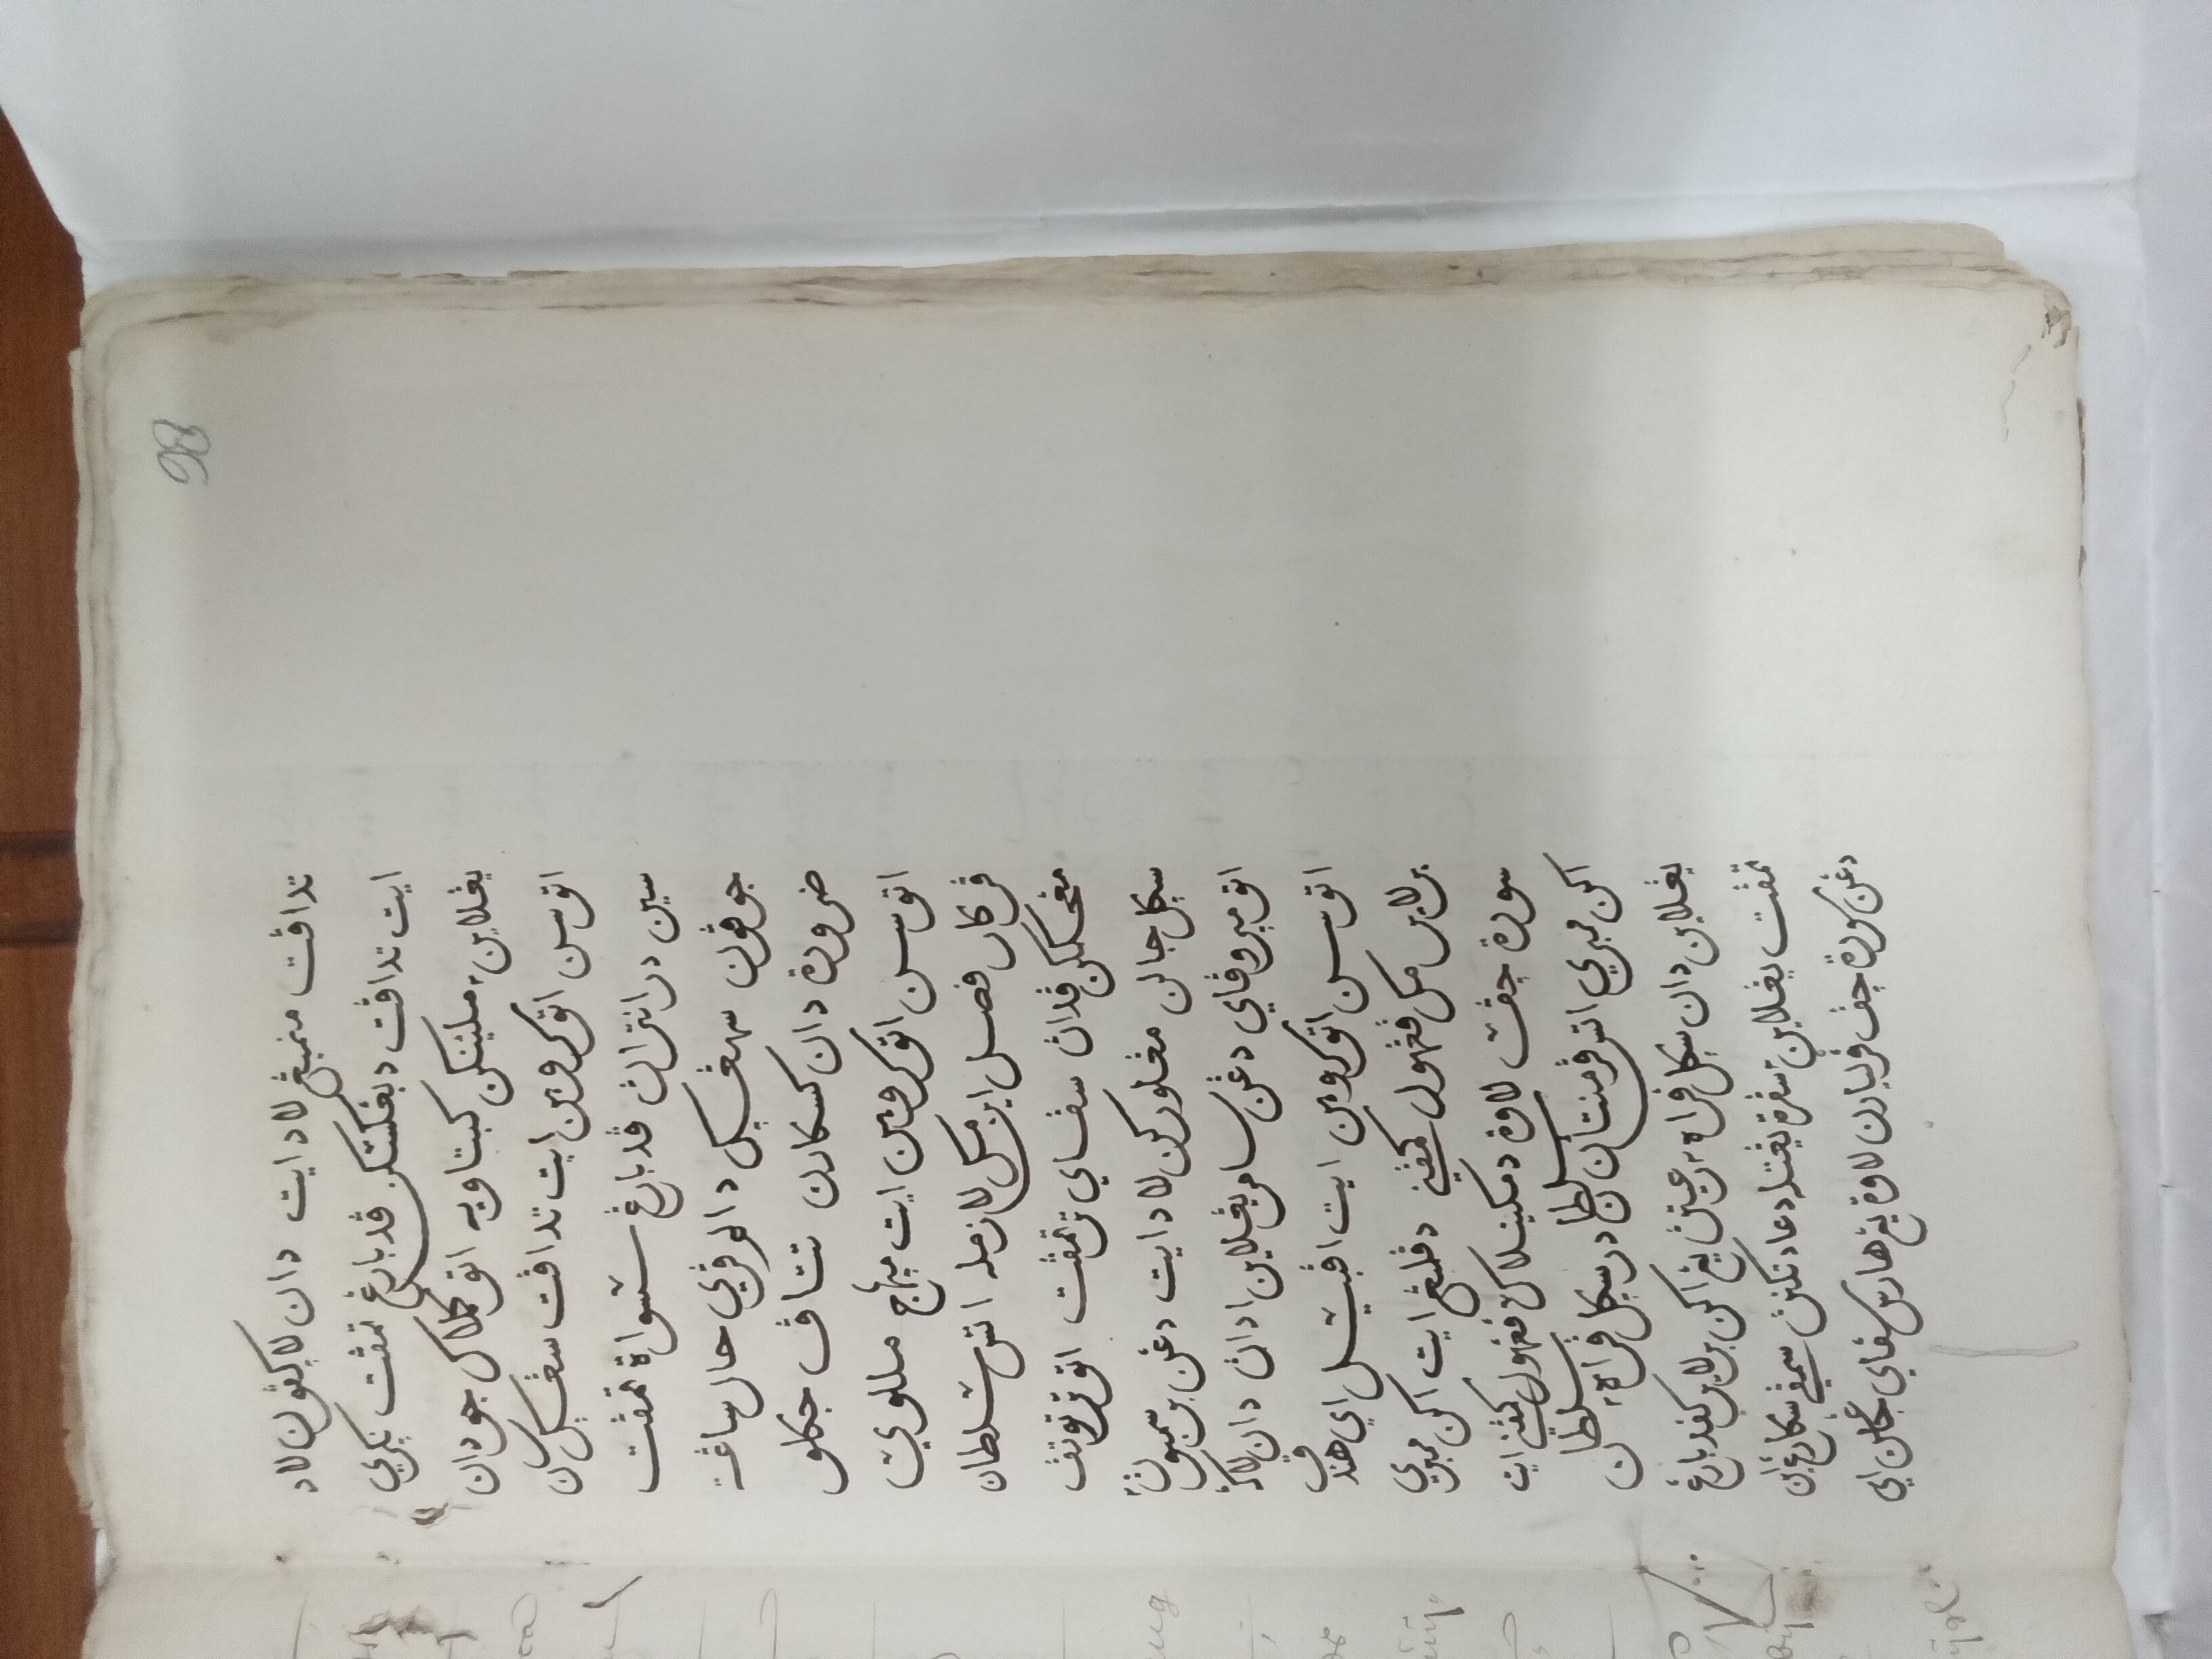 98
تداڤت منمبڠ لاد ايت دان لاکڤون لاد
ايت تداڤت دبڠکسکن ڤد بارڠ تمڤت نکري
يڠلاين٢ ملينکن کبتاويه اتو کملاک جودان
اتوسن اتو کروهن ايت تداڤت سڠکل کن
سين درانتراڽ ڤد بارڠ سسواة تمڤت
جوڤون سهڠکل دالم ڤري حال ساڠة
ضرورة دان کسکارن تتاڤ جکلو
اتوسن اتو کروهن ايت ميهاج مللوي
ڤرکار فصل اين مک لازمله اتس سلطان
مڠحکمکن ڤداڽ سڤاي ترتمڤت اتو ترتوتڤ
سکل جالن مڠلورکن لاد ايت دڠن برسمبوڽ٢
اتو ميروڤاي دڠن سامر يڠلاين اداڽ دان لاݢ
اتوسن اتو کروهن ايت اڤبيل اي هندق
برلاير مک ڤڠهول کمڤني دڤلمبڠ ايت اکن ممبري
سورة چڤ لاوة دمکينلاݢ ڤڠهول کمڤني ايت
اکن ممبري اتس ڤرمنتأن سلطان در سکل ڤراه٢ سلطان
يڠلاين دان سکل ڤراه٢ رعيتڽ يڠ اکن برلاير کڤد بارڠ
تمڤت يڠلاين٢ سڤرة يڠتله دعادتکنڽ سمڤي سکارڠ اين
دڠن سورة چڤ ڤرليارن لاوة يڠ هارس سڤاي جاڠن اي